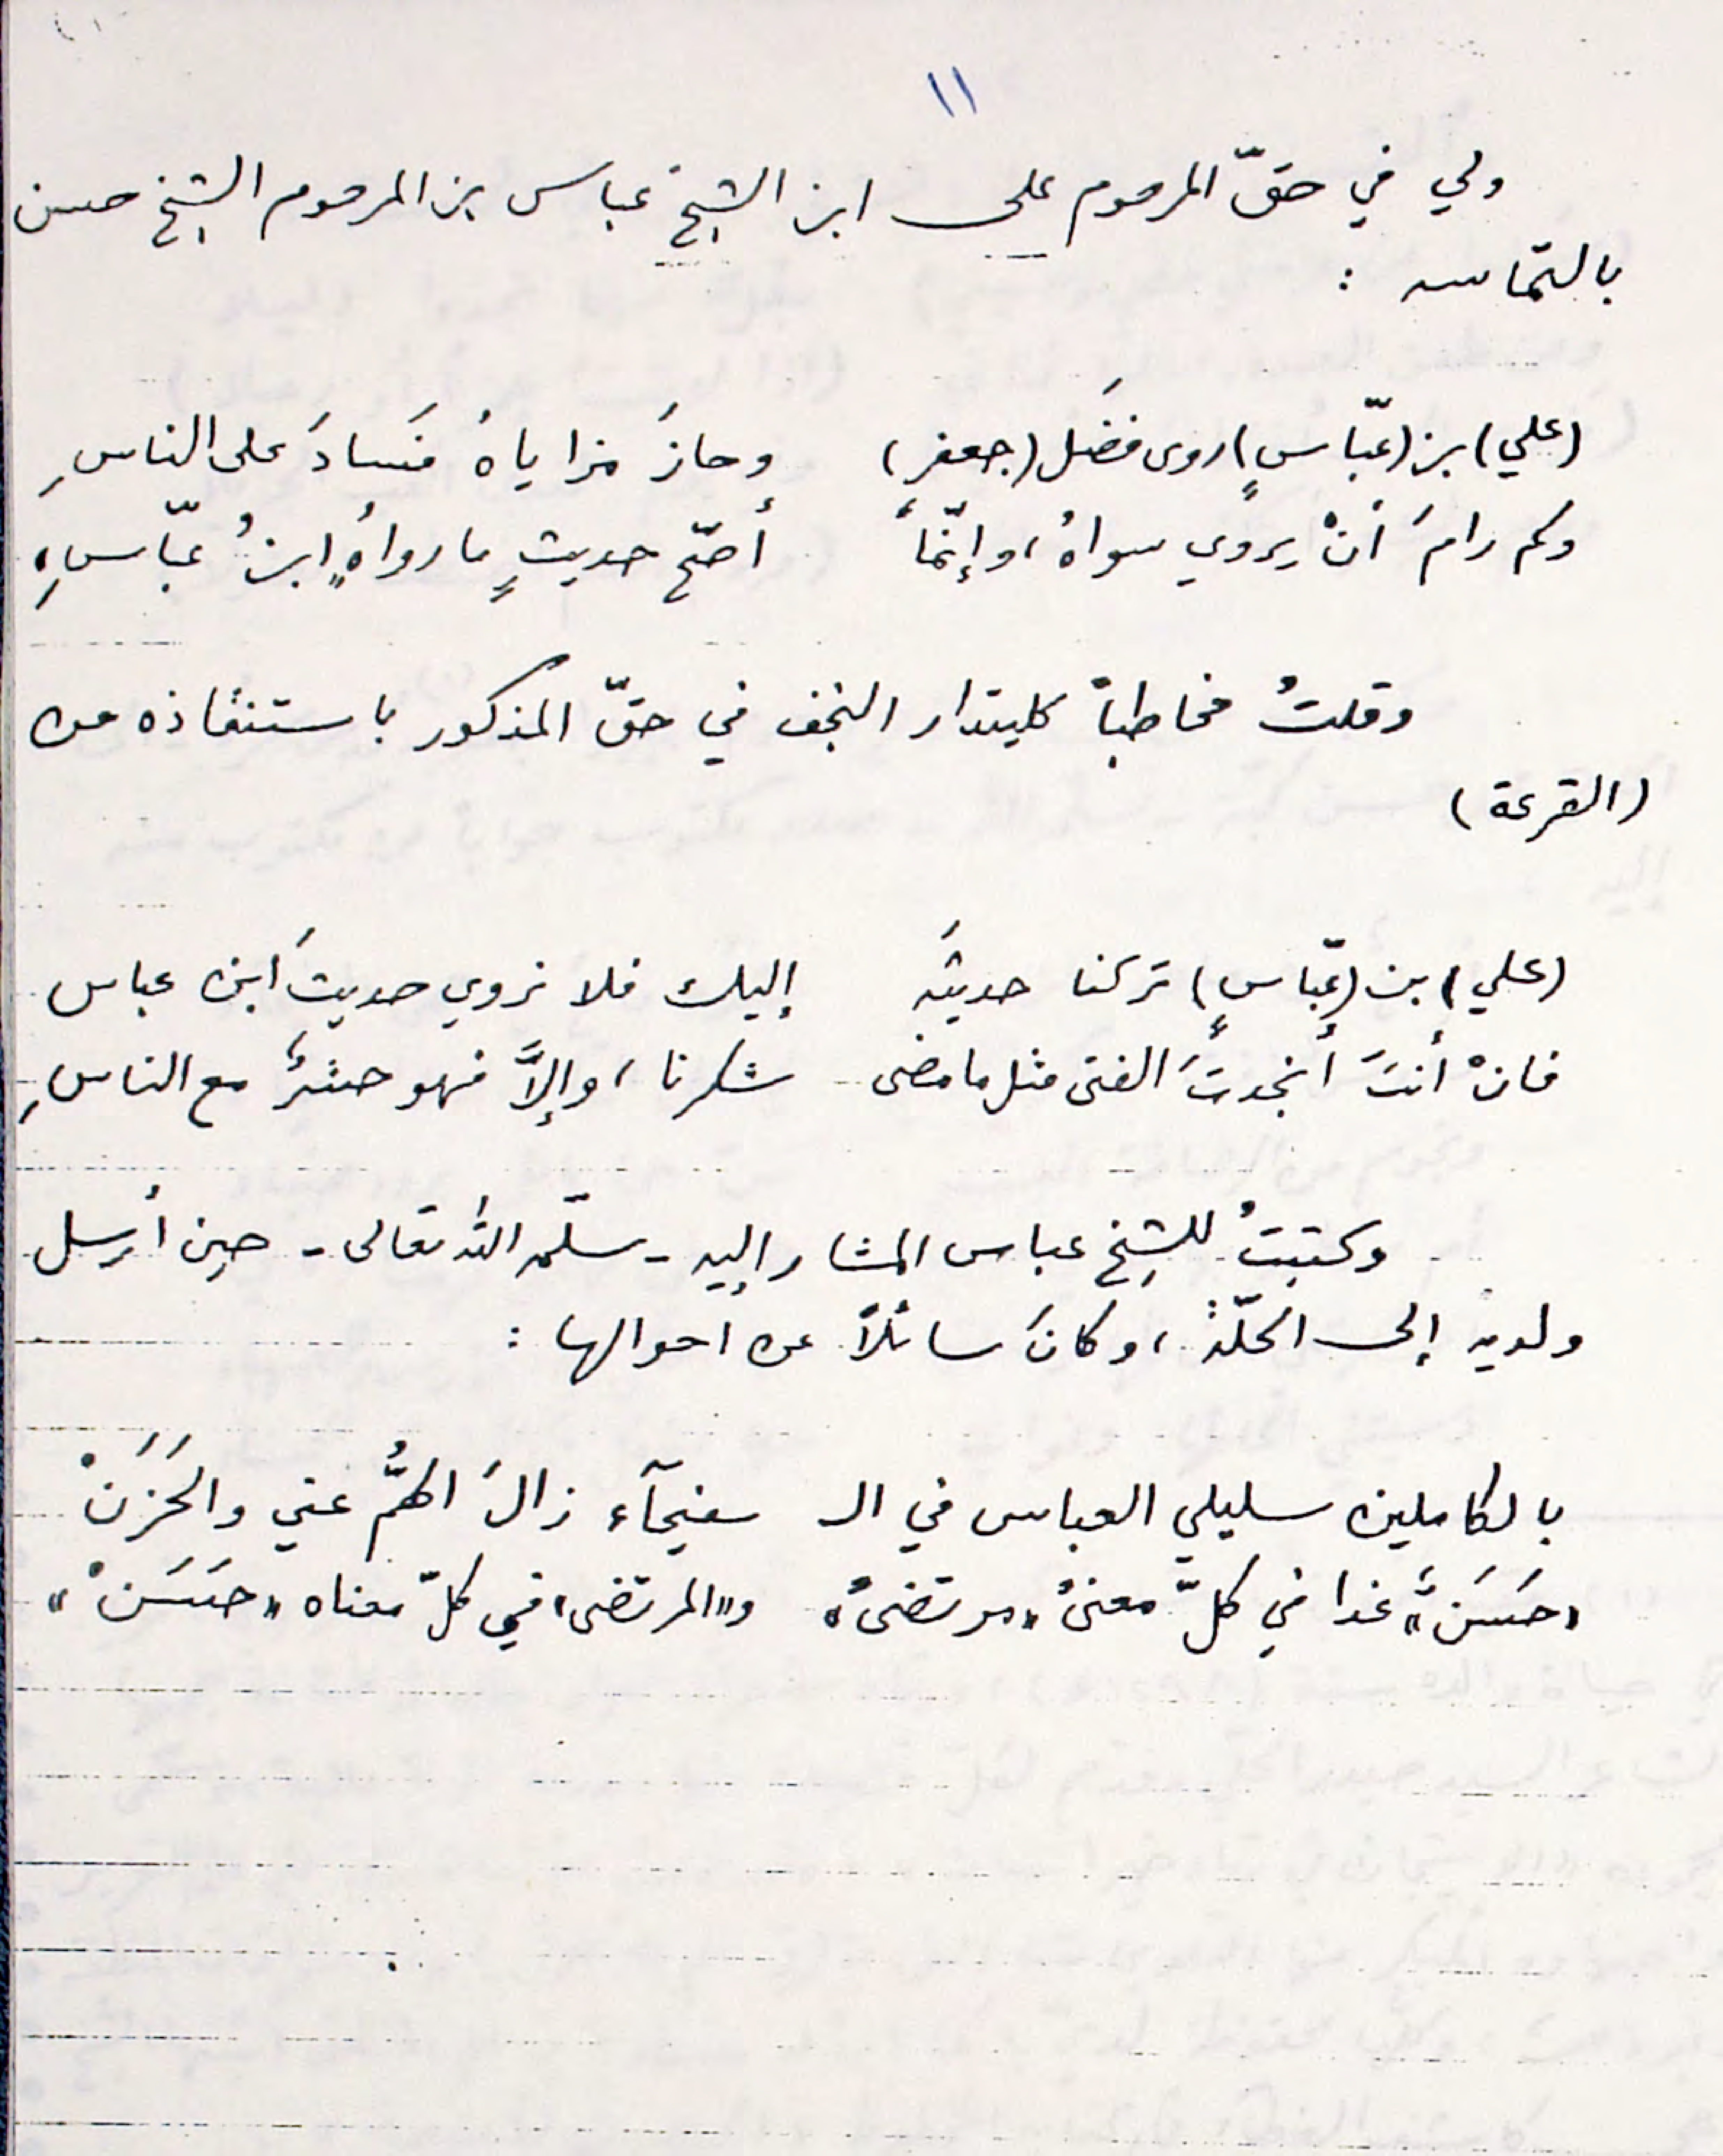 ١١
ولي في حقّ المرحوم علي ابن الشيخ عباس بن المرحوم الشيخ حسن
بالتماسه :
(علي) بن (عبّاسٍ) روى فضَل (جعفر) وحازَ مزاياهُ فَسادَ على الناسِ
وكم رامَ أنْ يروي سواهُ، وإنّما أصحّ حديثٍ ما رواهُ "ابنُ عبّاسِ"
وقلتُ مخاطباً كليتدار النجف في حقّ المذكور باستنقاذه من
(القرعة)
(علي) بن (عبّاسٍ) تركنا حديثَه إليك فلا نروي حديثَ ابن عباس
فانْ أنتَ أنجدتَ الفتى مثل ما مضى شكرنا، وإلاَّ فهو حشرٌ مع الناسِ
وكتبتُ للشيخ عباس المشار إليه - سلّمه الله تعالى - حين أرسل
ولديه إلى الحلّة، وكانَ سائلاً عن احوالها :
بالكاملين سليلي العباس في الـ سفيحآء زالَ الهمُّ عني والحَزَنْ
"حَسَنٌ" غدا في كلّ معنىً "مرتضىً" و"المرتضى" في كلّ معناه "حَسَنْ"